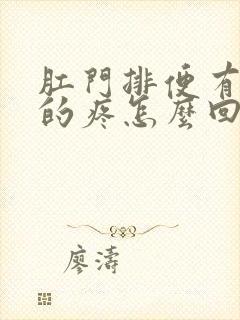 肛門排便有
的疼怎麼回
廖濤